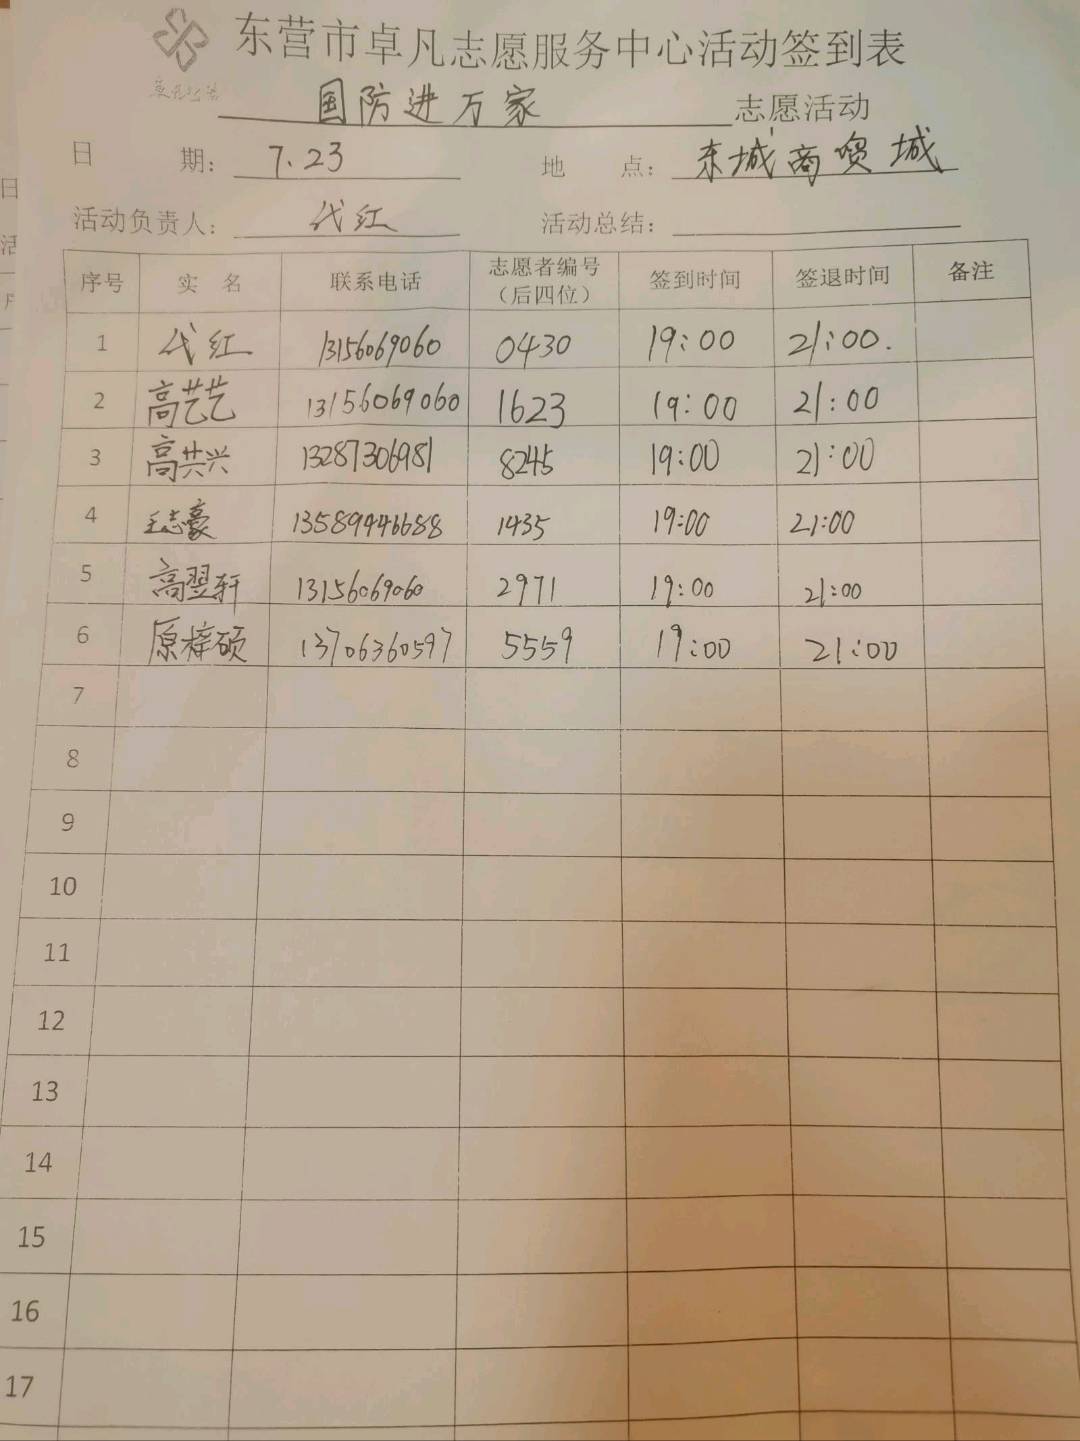 东营市卓凡志愿服务中心活动签到表
国防进万家 志愿活动
日 期: 7.23 地 点: 东城商贸城
活动负责人: 代红 活动总结:
序号 实 名 联系电话 志愿者编号（后四位） 签到时间 签退时间 备注
1 代红 13156069060 0430 19:00 21:00.
2 高艺艺 13156069060 1623 19:00 21:00
3 高共兴 13287306981 8245 19:00 21:00
4 王志豪 13589946688 1435 19:00 21:00
5 高翌轩 13156069060 2971 19:00 21:00
6 原梓硕 13706360597 5559 19:00 21:00
7
8
9
10
11
12
13
14
15
16
17